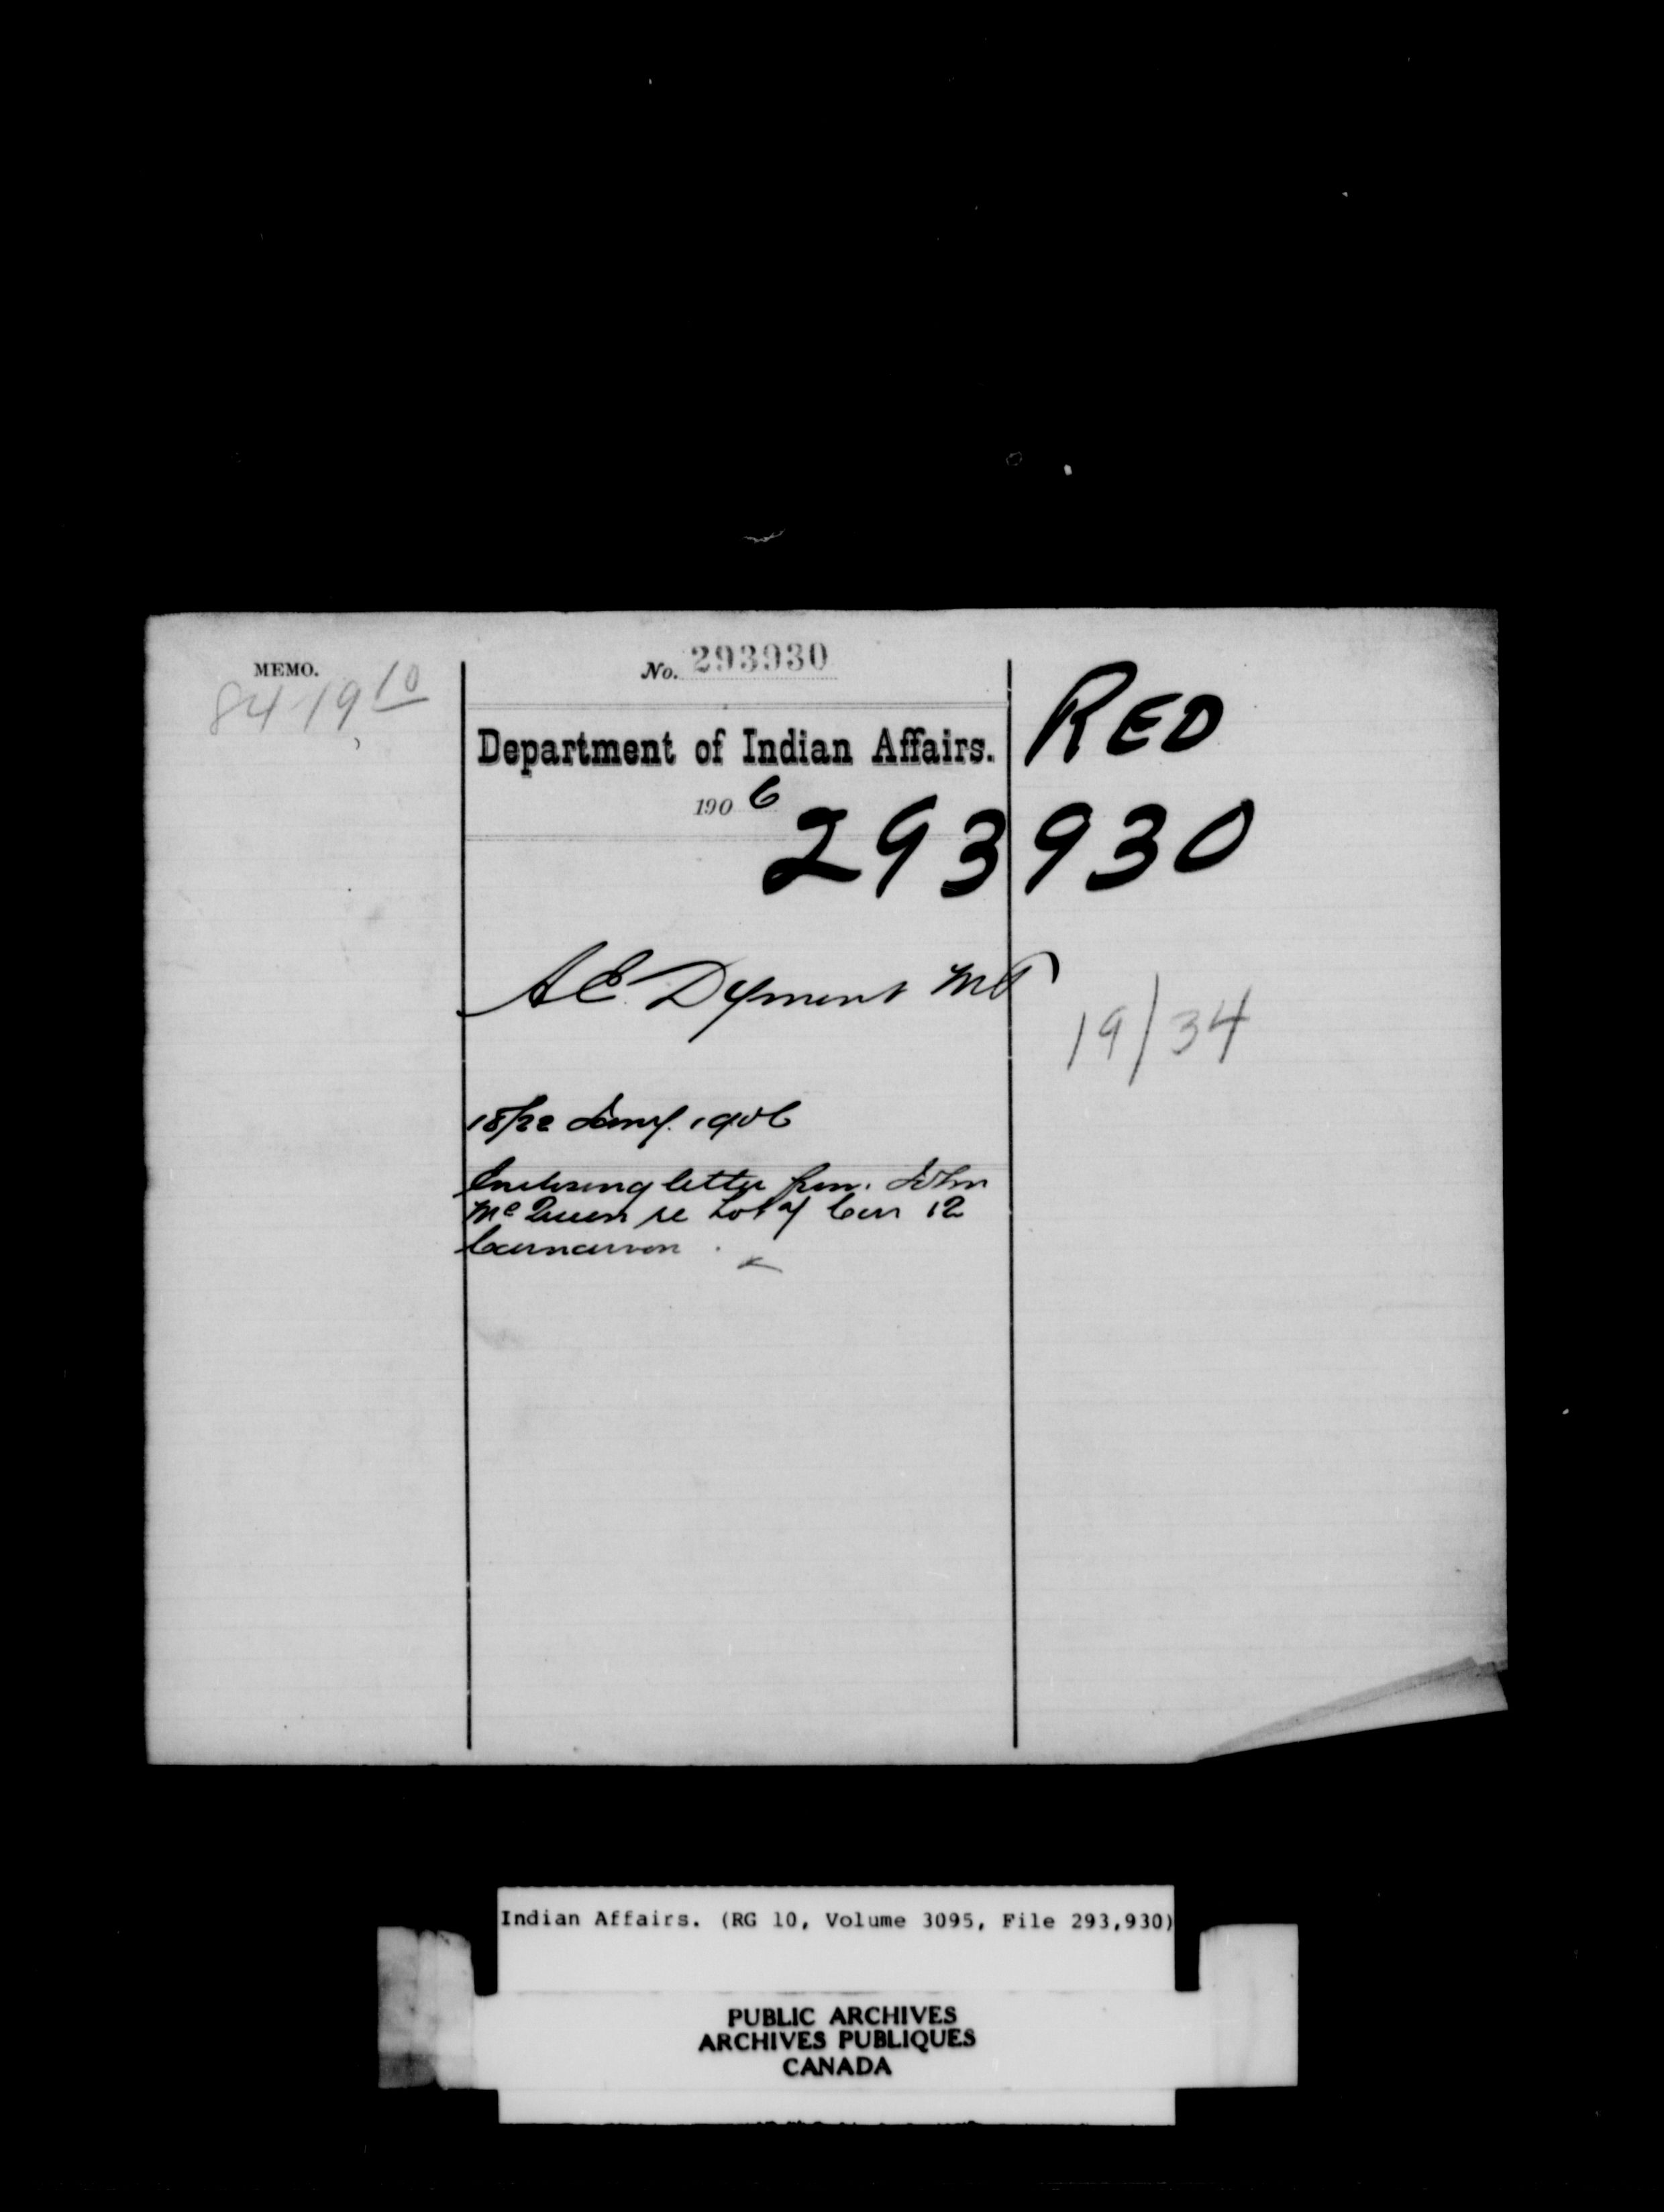 MEMO.
84-19 10
No. 293930
Department of Indian Affairs.
1906
RED
293930
A E. Dyment MP
19/34
18/22 Jany. 1906
Enclosing letter from John
McQueen re Lot Con 12
Carnarvon.
Indian Affairs. (RG 10, Volume 3095, File 293,930)
PUBLIC ARCHIVES
ARCHIVES PUBLIQUES
CANADA